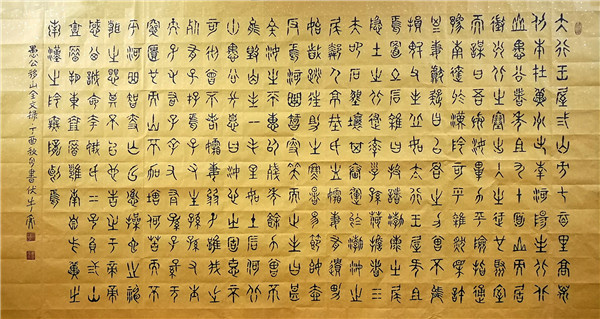 太行王屋二山方七百里高萬
仞本在冀州之南河陽之北北
山愚公者年且九十面山而居
懲山北之塞出入之迂也聚室
而謀曰吾與汝畢力平險指通
豫南達于漢陰可乎雜然相許
其妻獻疑曰以君之力曾不能
損魁父之丘如太行王屋何且
焉置土石雜曰投諸渤海之尾
隱土之北遂率子孫荷擔者三
夫叩石墾壤箕畚運于渤海之
尾鄰人京城氏之孀妻有遺男
始齔跳往助之寒暑易節始一
反焉河曲智叟笑而止之曰甚
矣汝之不惠以殘年餘力曾不
能毀山之一毛其如土石何北
山愚公長息曰汝心之固固不
可徹曾不若孀妻弱子雖我之
死有子存焉子又生孫孫又生
子子又有子子又有孫子子孫
孫無窮匱也而山不加增何苦
而不平河曲智叟亡以應操蛇
之神聞之懼其不已也告之于帝
帝感其誠命夸娥氏二子負二山
一厝朔東一厝雍南自此冀之
南漢之陰無隴斷焉
愚公移山全文錄 丁酉秋月書伏牛